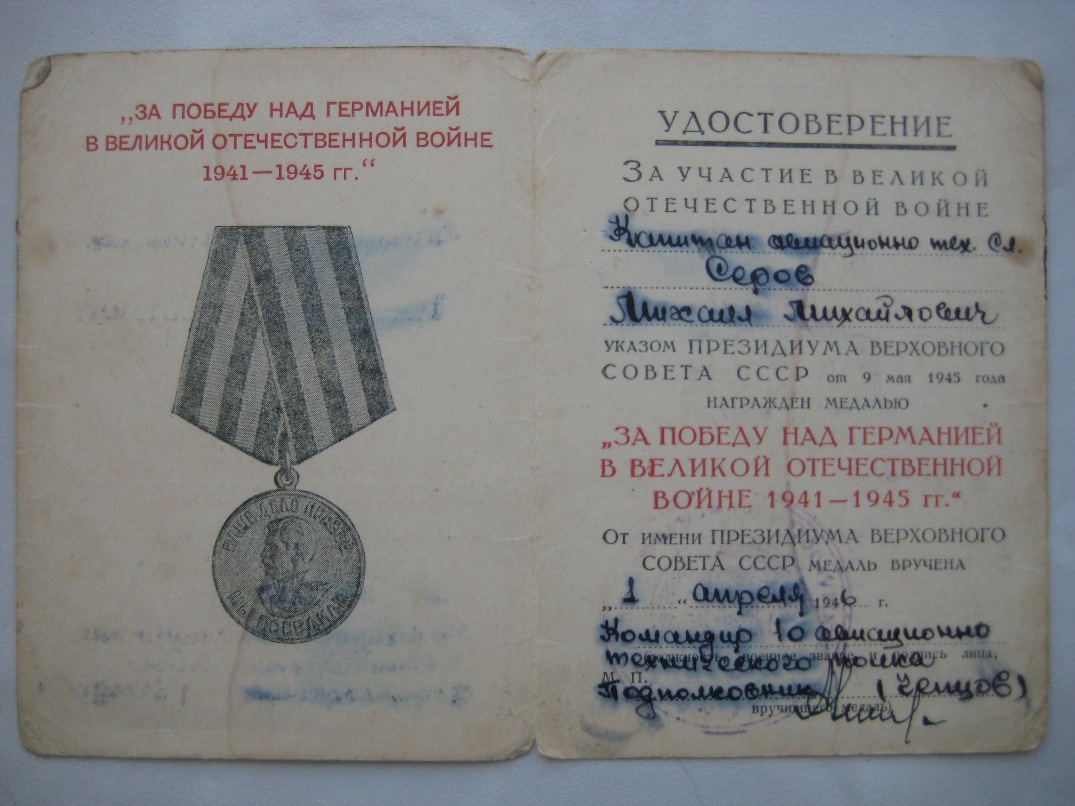 „ЗА ПОБЕДУ НАД ГЕРМАНИЕЙ
В ВЕЛИКОЙ ОТЕЧЕСТВЕННОЙ ВОЙНЕ
1941—1945 гг.“
НАШЕ ДЕЛО ПРАВОЕ
МЫ ПОБЕДИЛИ
УДОСТОВЕРЕНИЕ
ЗА УЧАСТИЕ В ВЕЛИКОЙ
ОТЕЧЕСТВЕННОЙ ВОЙНЕ
Капитан авиационно тех. Сл.
Серов
Михаил Михайлович
УКАЗОМ ПРЕЗИДИУМА ВЕРХОВНОГО
СОВЕТА СССР от 9 мая 1945 года
НАГРАЖДЕН МЕДАЛЬЮ
„ЗА ПОБЕДУ НАД ГЕРМАНИЕЙ
В ВЕЛИКОЙ ОТЕЧЕСТВЕННОЙ
ВОЙНЕ 1941—1945 гг.“
ОТ ИМЕНИ ПРЕЗИДИУМА ВЕРХОВНОГО
СОВЕТА СССР МЕДАЛЬ ВРУЧЕНА
„1“ апреля 1946 г.
Командир 10 авиационно
(должность, военное звание и подпись лица,
технического полка
М. П.
Подполковник (Ченцов)
вручившего медаль)